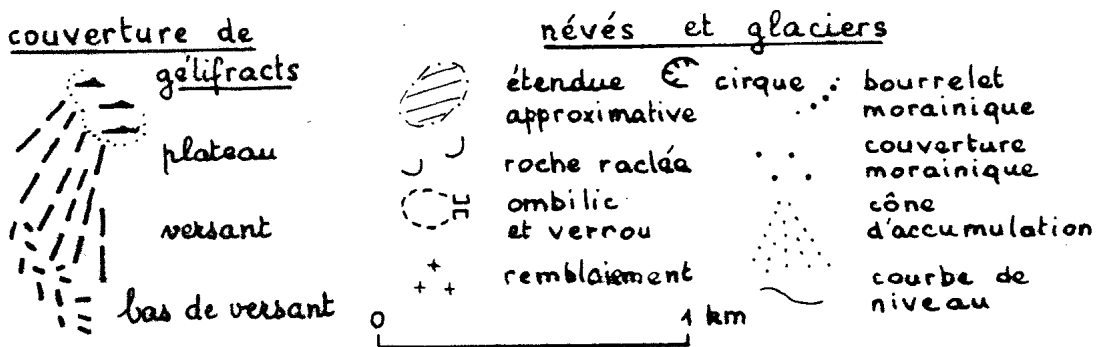 couverture de
gélifracts
plateau
versant
bas de versant
névés et glaciers
étendue
approximative
cirque
bourrelet
morainique
roche raclée
couverture
morainique
ombilic
et verrou
cône
d'accumulation
remblaiement
courbe de
niveau
0
1 km